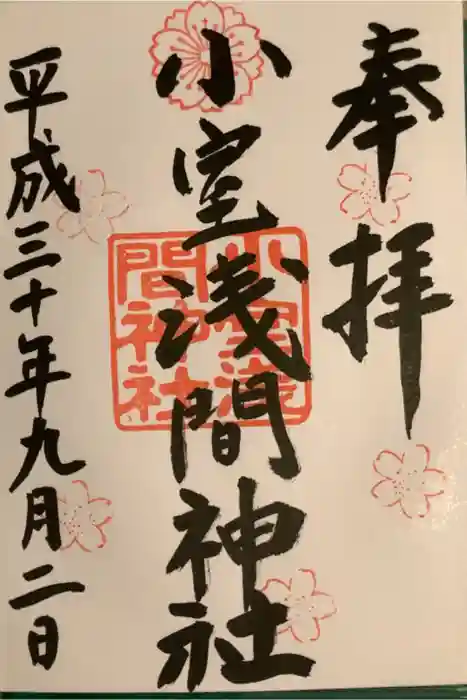 奉拝
小室浅間神社
小室浅間神社
平成三十年九月二日